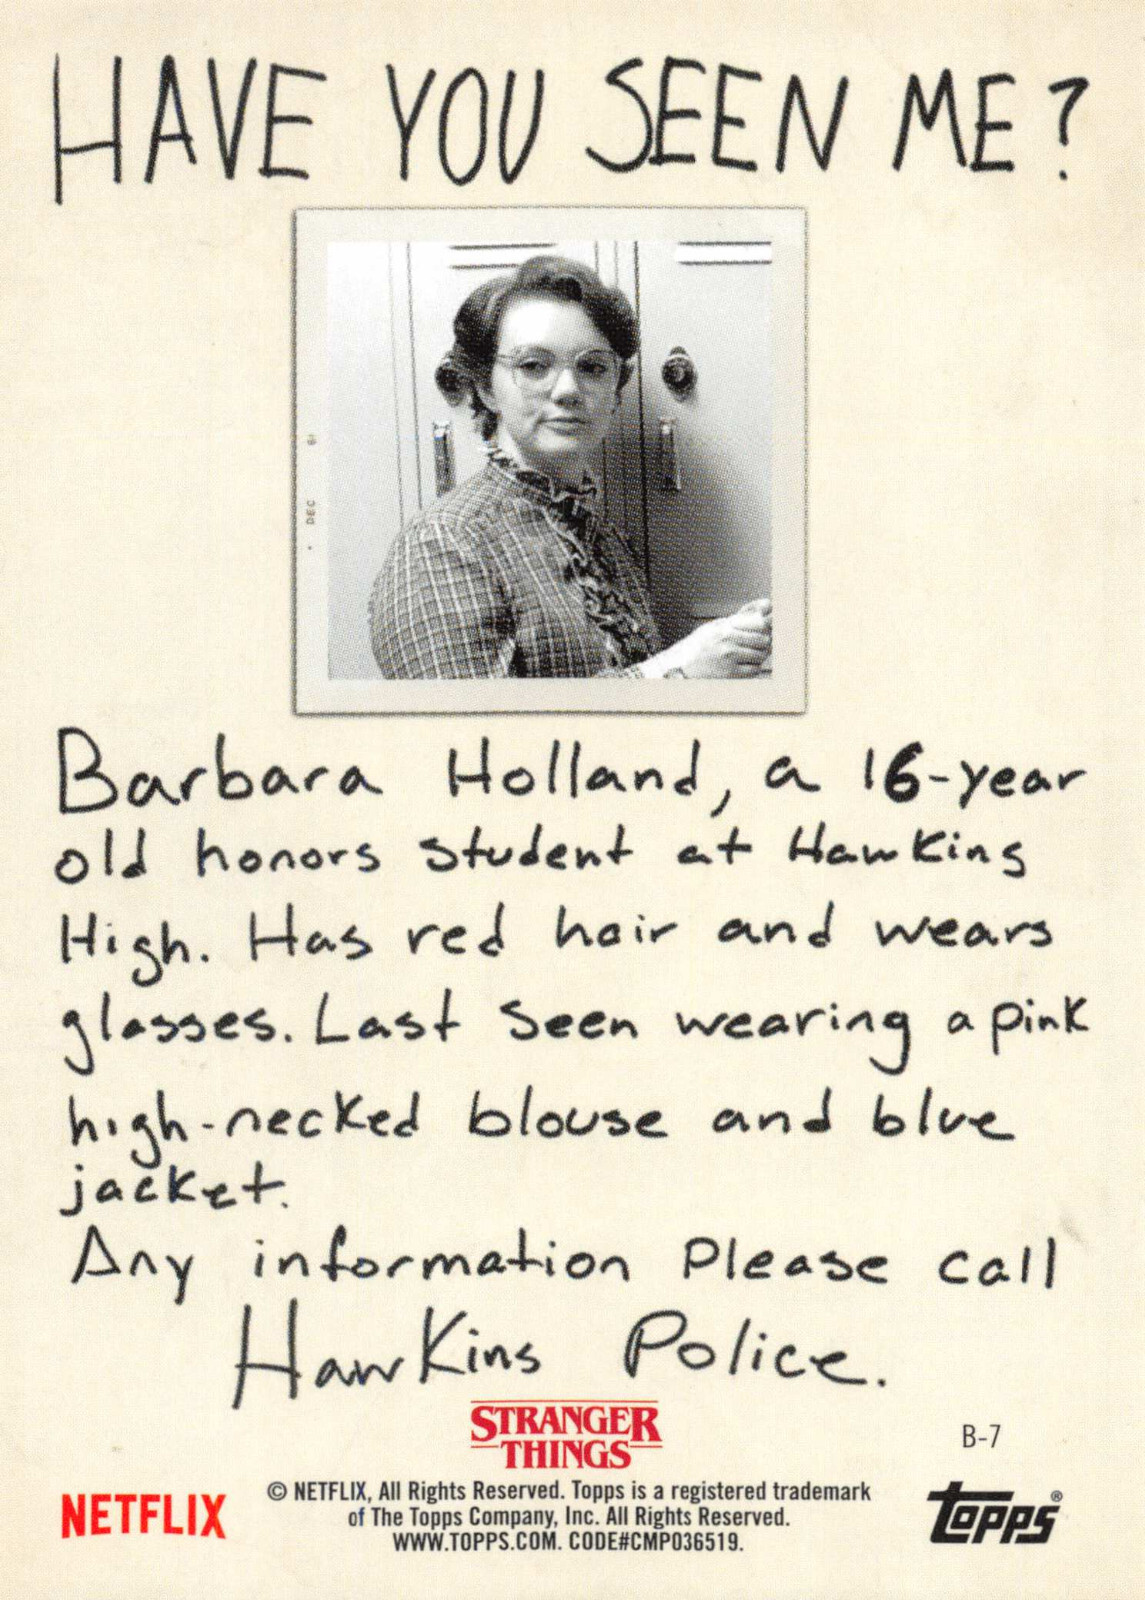 HAVE YOU SEEN ME?
DEC 61
Barbara Holland, a 16-year
old honors student at Hawkins
High. Has red hair and wears
glasses. Last seen wearing a pink
high-necked blouse and blue
jacket.
Any information Please call
Hawkins Police.
STRANGER
THINGS
B-7
NETFLIX
© NETFLIX, All Rights Reserved. Topps is a registered trademark
of The Topps Company, Inc. All Rights Reserved.
WWW.TOPPS.COM. CODE#CMP036519.
Topps®